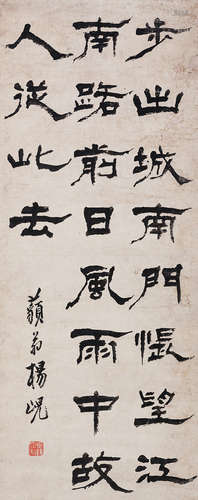 步出城南門悵望江
南路前日風雨中故
人從此去
藐翁楊峴